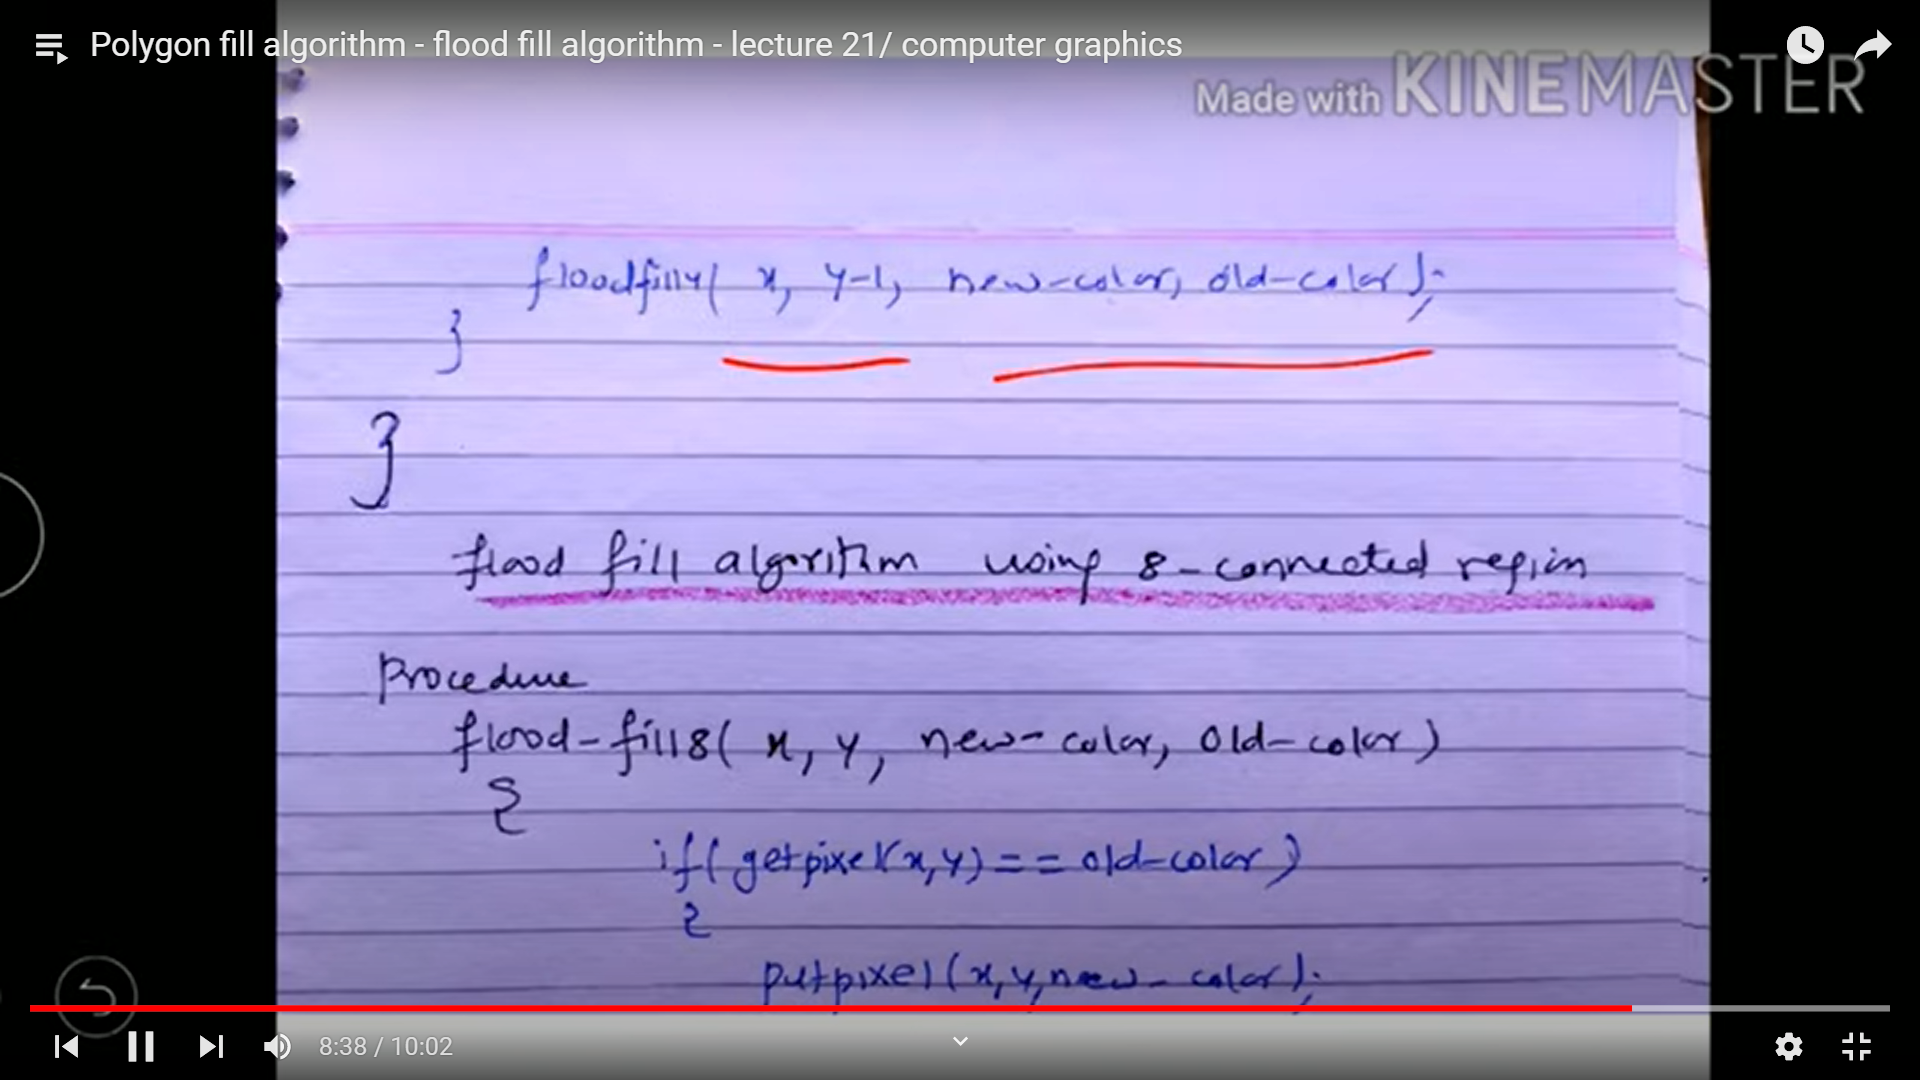 Polygon fill algorithm - flood fill algorithm - lecture 21/ computer graphics
Made with KINEMASTER
floodfill4( x, y-1, new-color, old-color);
}
}
flood fill algorithm using 8-connected region
Procedure
flood-fill8( x, y, new-color, old-color)
{
if( getpixel(x,y) == old-color)
{
putpixel(x,y,new-color);
8:38 / 10:02